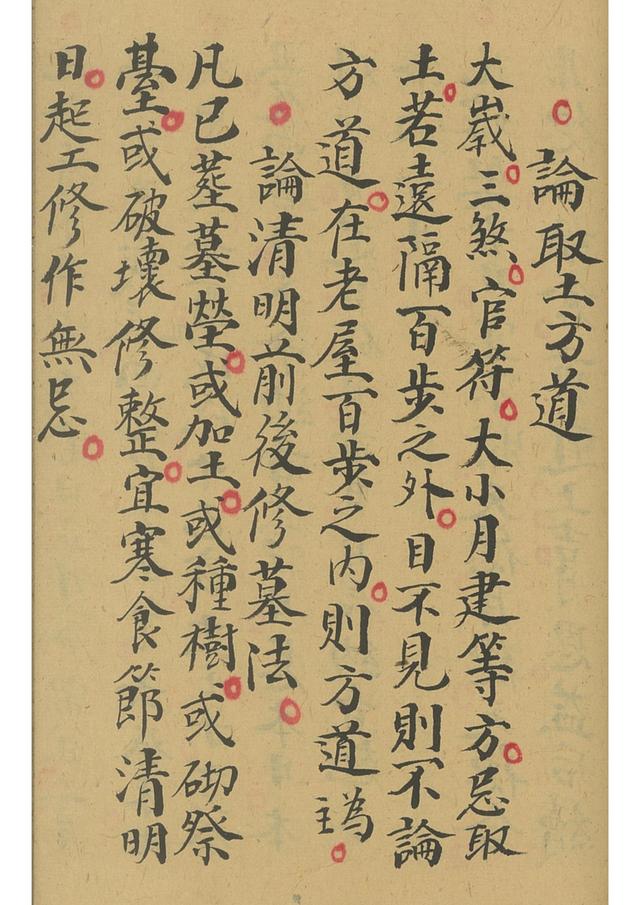 論取土方道
大嵗三煞官符大小月建等方忌取
土若遠隔百步之外目不見則不論
方道在老屋百步之内則方道為主
論清明前後修墓法
凡已塟墓塋或加土或種樹或砌祭
臺或破壞修整宜寒食節清明
日起工修作無忌